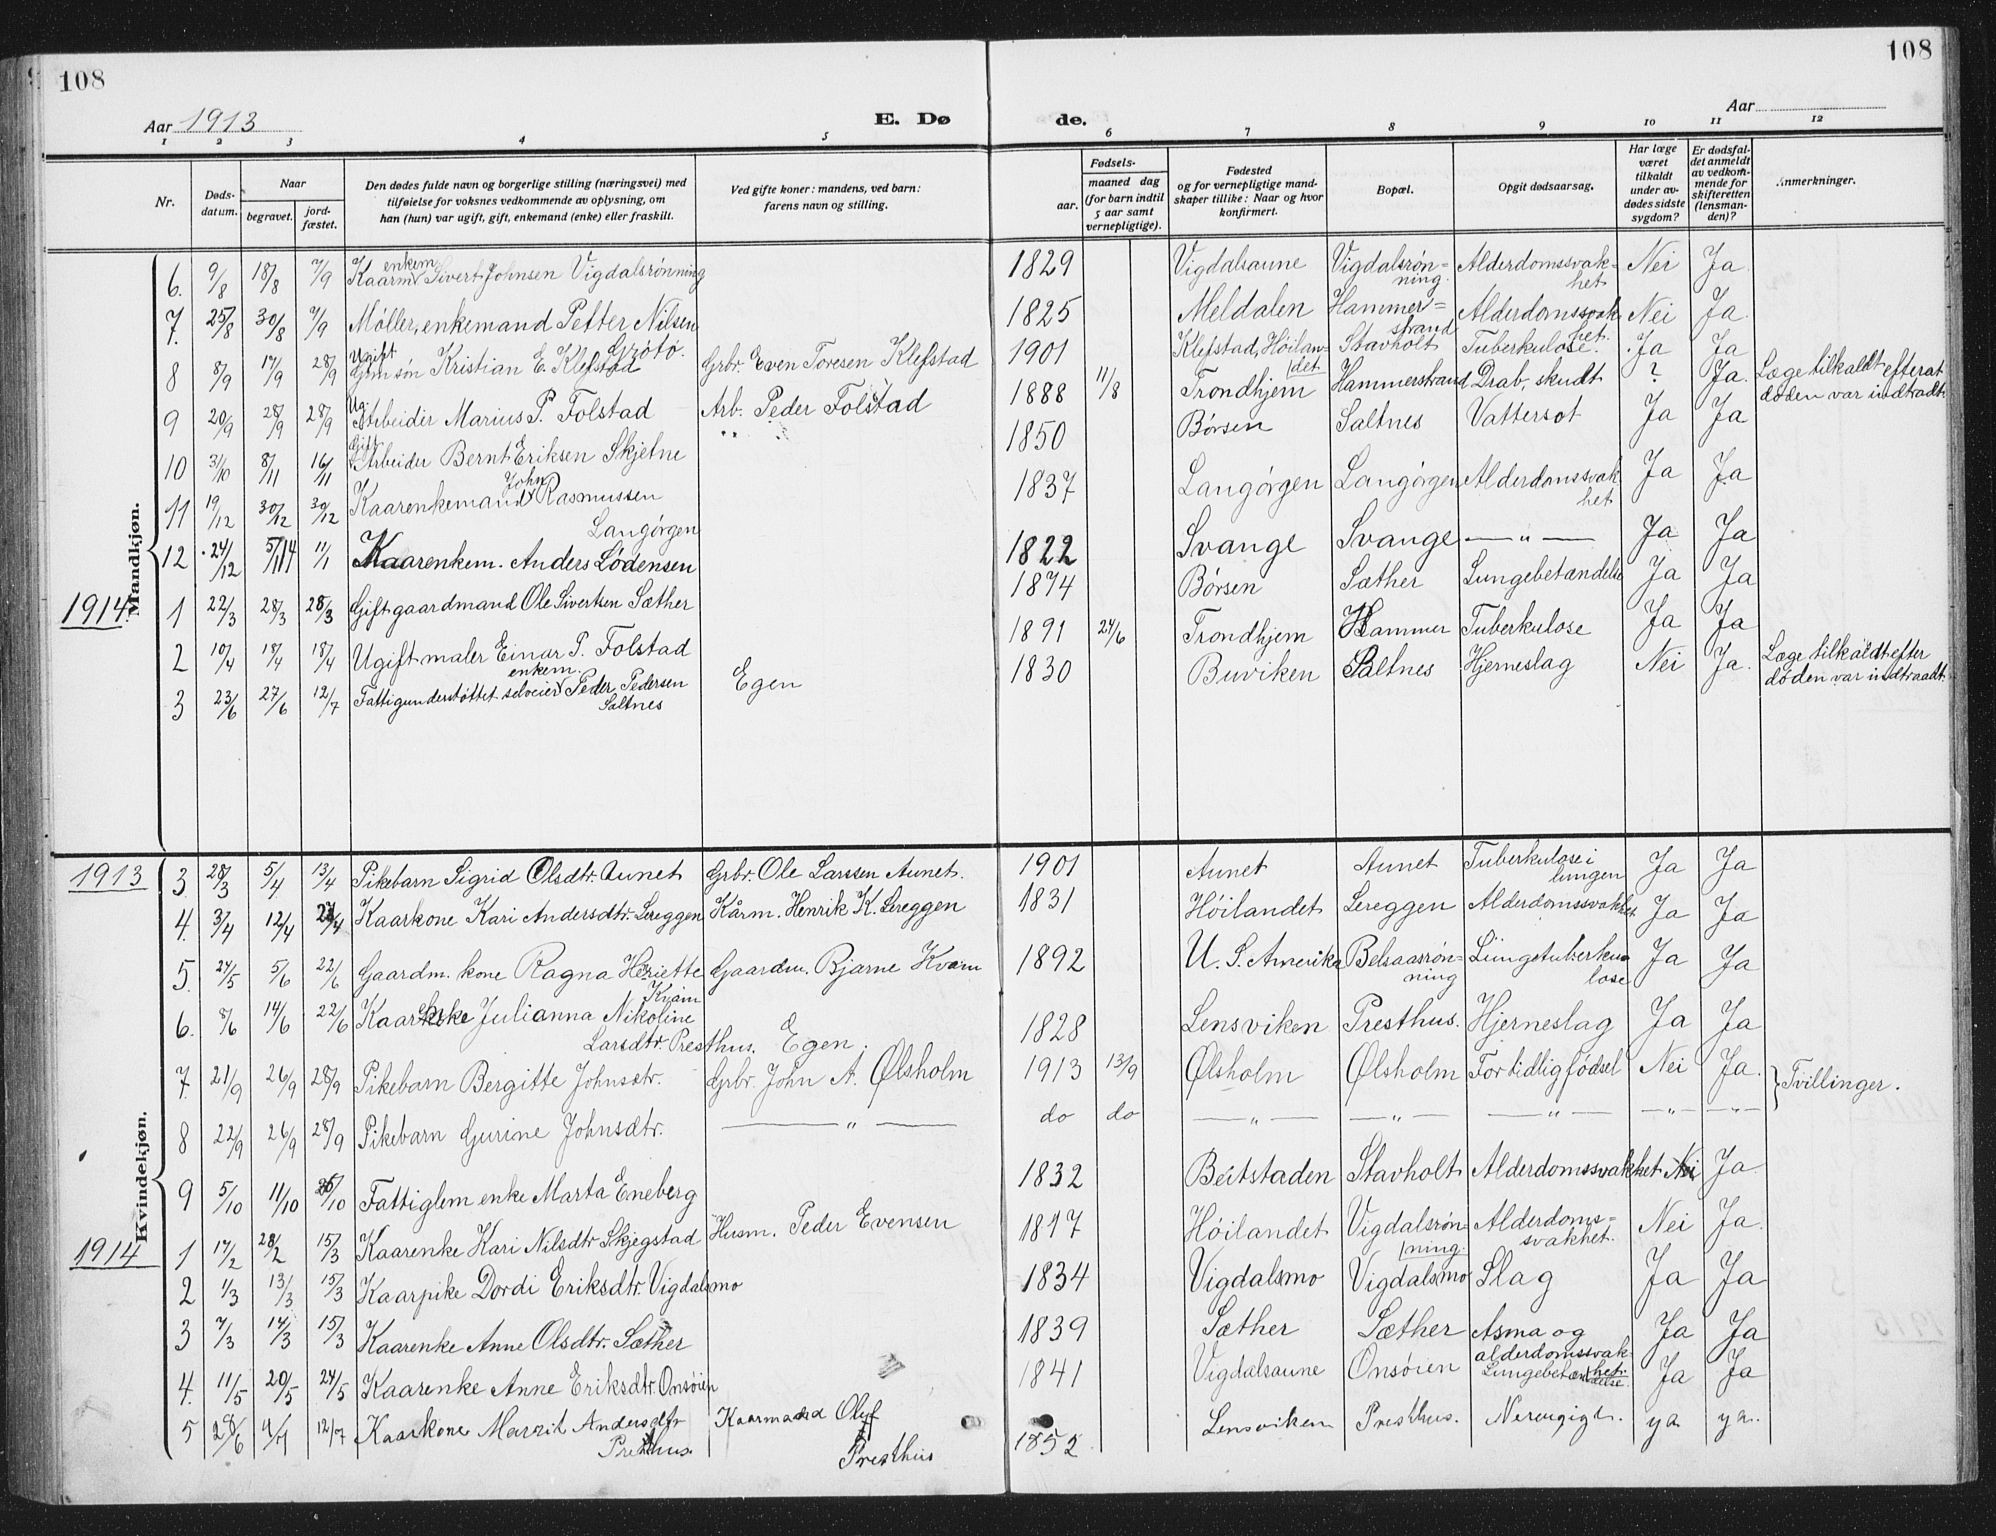 108
108
Aar 1913
E. Dø
de.
Aar
1 2 3 4 5 6 7 8 9 10 11 12
Nr.
Døds-
datum.
Naar
begravet.
jord-
fæstet.
Den dødes fulde navn og borgerlige stilling (næringsvei) med
tilføielse for voksnes vedkommende av oplysning, om
han (hun) var ugift, gift, enkemand (enke) eller fraskilt.
Ved gifte koner: mandens, ved barn:
farens navn og stilling.
Fødsels-
aar.
maaned dag
(for barn indtil
5 aar samt
vernepligtige).
Fødested
og for vernepligtige mand-
skaper tillike: Naar og hvor
konfirmert.
Bopæl.
Opgit dødsaarsag.
Har læge
været
tilkaldt
under av-
dødes sidste
sygdom?
Er dødsfal-
det anmeldt
av vedkom-
mende for
skifteretten
(lensman-
den)?
Anmerkninger.
Mandkjøn.
6. 9/8 18/8 7/9 Kaarm enkem. Sivert Johnsen Vigdalsrønning 1829 Vigdalsaune Vigdalsrøn= Alderdomssvak= Nei Ja
ning. het
7. 25/8 30/8 7/9 Møller, enkemand Petter Nilsen 1825 Meldalen Hammer= Alderdomssvak Nei Ja.
Grøto. strand het.
8 8/9 17/9 28/9 Ugift Gdm søn Kristian E. Klefstad Grbr. Even Toresen Klefstad 1901 Klefstad, Høilan= Stavholt Tuberkulose. Ja Ja
det
9 20/9 28/9 28/9 Ug. Arbeider Marius P. Folstad Arb. Peder Folstad 1888 11/8 Trondhjem Hammerstrand Drab, skudt ? Ja. Læge tilkaldt efterat
døden var indtradt.
10 31/10 8/11 16/11 Gift Arbeider Bernt Eriksen Skjetne 1850 Børsen Saltnes Vattersot Ja Ja
11 19/12 30/12 30/12 Kaarenkemand John Rasmussen 1837 Langørgen Langørgen Alderdomssvak Ja Ja
Langørgen het
12 24/12 5/1 14 11/1 Kaarenkem. Anders Lødensen 1822 Svange Svange — " — Ja Ja
1914.
1 22/3 28/3 28/3 Gift gaardmand Ole Sivertsen Sæther 1874 Børsen Sæther Lungebetændelse Ja Ja
2 10/4 18/4 18/4 Ugift maler Einar P. Folstad 1891 24/6 Trondhjem Hammer Tuberkulose Ja Ja
3 23/6 27/6 12/7 Fattigunderstøttet selveier enkem. Peder Pedersen Egen 1830 Buviken Saltnes Hjerneslag Nei Ja. Læge tilkaldt efter
Saltnes døden var indtraadt.
Kvindekjøn.
1913
3. 28/3 5/4 13/4 Pikebarn Sigrid Olsdtr. Aunet Grbr. Ole Larssen Aunet. 1901 Aunet Aunet Tuberkulose i Ja Ja
lungen
4. 3/4 12/4 Kaarkone Kari Andersdtr. Lereggen Kårm. Henrik K. Lereggen 1831 Høilandet Lereggen Alderdomssvakhet Ja Ja
5. 24/5 5/6 22/6 Gaardm. kone Ragna Henriette Gaardm. Bjarne Kvam 1892 U. S. Amerika Belsaasrøn= Lungetuberku= Ja Ja
Kvam ning lose
6. 8/6 14/6 22/6 Kaarenke Julianna Nikoline 1828 Lensviken Presthus. Hjerneslag Ja Ja
Larsdtr. Presthus. Egen.
7. 21/9 26/9 28/9 Pikebarn Bergitte Johnsdtr. Grbr. John A. Ølsholm 1913 13/9 Ølsholm Ølsholm For tidlig fødsel Nei Ja. Tvillinger.
8 22/9 26/9 28/9 Pikebarn Gurine Johnsdtr. — " — do do — " — — " — — " — — " — — " —
9 5/10 11/10 26/10 Fattiglem enke Marta Eneberg 1832 Beitstaden Stavholt Alderdomssvakhet Nei Ja
1914
1 17/2 28/2 15/3 Kaarenke Kari Nilsdtr Skjegstad Husm. Peder Evensen 1817 Høilandet Vigdalsrøn= Alderdoms= Nei Ja.
ning. svakhet.
2 1/3 13/3 15/3 Kaarpike Dordi Eriksdtr. Vigdalsmo 1834 Vigdalsmo Vigdalsmo Slag Ja Ja
3 7/3 14/3 15/3 Kaarenke Anne Olsdtr. Sæther 1839 Sæther Sæther Asma og Ja Ja
alderdomssvak-
het.
4. 11/5 20/5 24/5 Kaarenke Anne Eriksdtr. Onsøien 1841 Vigdalsaune Onsøien Lungebetændelse. Ja Ja
5 28/6 4/7 12/7 Kaarkone Marrit Andersdtr Kaarmand Oluf 1852 Lensviken Presthus. Nervegigt. ya ya.
Presthus. Presthus